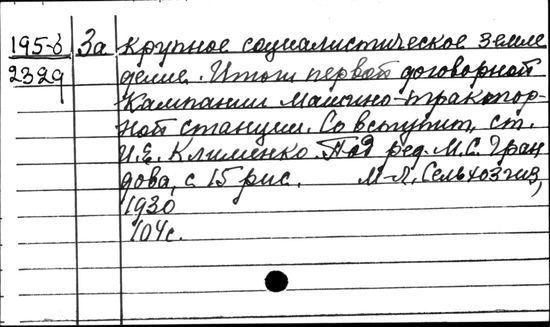 195-6 За крупное социалистическое земле
2329 делие. Итоги первой договорной
Кампании машино-трактор-
ной станции. Со вступит. ст.
И.Е. Клименко. Под ред. М.С. Гран
дова, с 15 рис. М-Л. Сельхозгиз,
1930
104с.